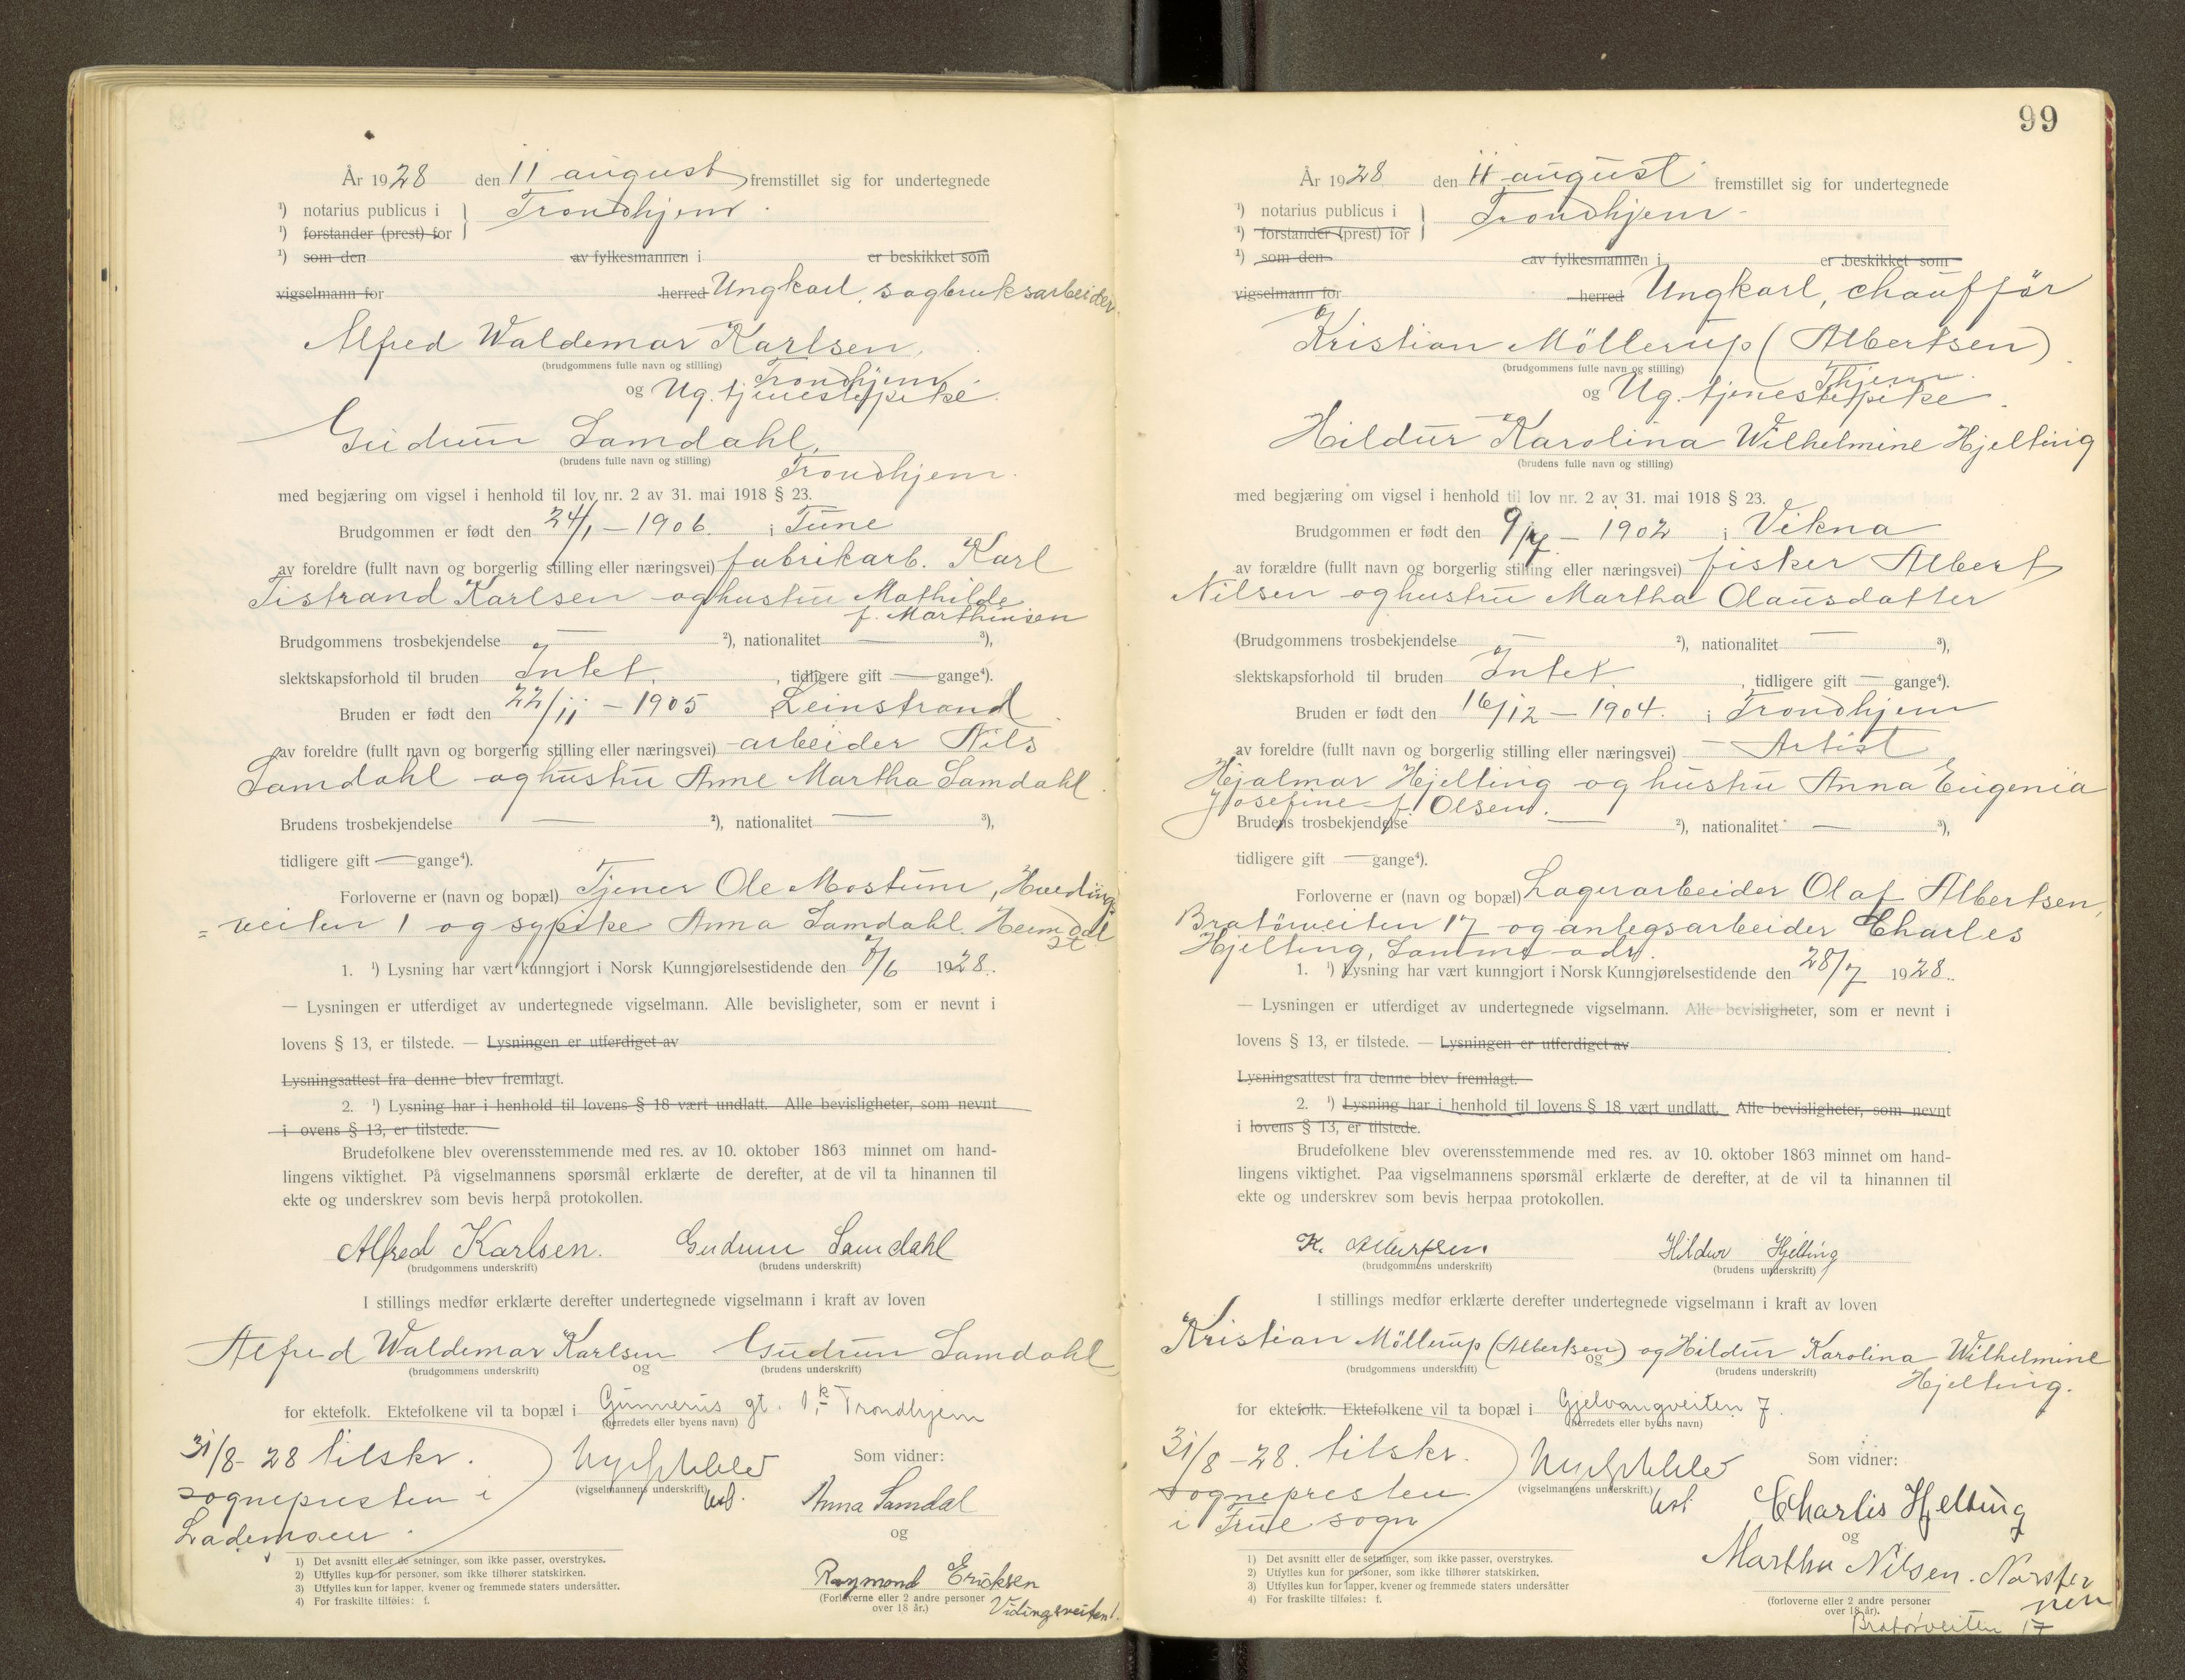 År 1928 den 11 august fremstillet sig for undertegnede
¹) notarius publicus i Trondhjem.
¹) forstander (prest) for
¹) som den av fylkesmannen i er beskikket som
vigselmann for herred Ungkarl, sagbruksarbeider
Alfred Waldemar Karlsen,
(brudgommens fulle navn og stilling)
Trondhjem.
og Ug. tjenestepike
Gudrun Samdahl,
(brudens fulle navn og stilling)
Trondhjem.
med begjæring om vigsel i henhold til lov nr. 2 av 31. mai 1918 § 23.
Brudgommen er født den 24/1 – 1906. i Tune
av foreldre (fullt navn og borgerlig stilling eller næringsvei) fabrikarb. Karl
Tistrand Karlsen og hustru Mathilde
f. Marthinsen
Brudgommens trosbekjendelse — ²), nationalitet — ³),
slektskapsforhold til bruden Intet, tidligere gift — gange⁴).
Bruden er født den 22/11 – 1905 Leinstrand
av foreldre (fullt navn og borgerlig stilling eller næringsvei) arbeider Nils
Samdahl og hustru Anne Martha Samdahl.
Brudens trosbekjendelse — ²), nationalitet — ³),
tidligere gift — gange⁴).
Forloverne er (navn og bopæl) Tjener Ole Mostum,
veiten 1 og sypike Anna Samdahl. Heimdal
st.
1. ¹) Lysning har vært kunngjort i Norsk Kunngjørelsestidende den 7/6 1928.
— Lysningen er utferdiget av undertegnede vigselmann. Alle bevisligheter, som er nevnt i
lovens § 13, er tilstede. — Lysningen er utferdiget av
Lysningsattest fra denne blev fremlagt.
2. ¹) Lysning har i henhold til lovens § 18 vært undlatt. Alle bevisligheter, som nevnt
i ovens § 13, er tilstede.
Brudefolkene blev overensstemmende med res. av 10. oktober 1863 minnet om hand-
lingens viktighet. På vigselmannens spørsmål erklærte de derefter, at de vil ta hinannen til
ekte og underskrev som bevis herpå protokollen.
Alfred Karlsen. Gudrun Samdahl
(brudgommens underskrift) (brudens underskrift)
I stillings medfør erklærte derefter undertegnede vigselmann i kraft av loven
Alfred Waldemar Karlsen Gudrun Samdahl
(brudgommens underskrift) og (brudens underskrift)
for ektefolk. Ektefolkene vil ta bopæl i Gunnerus gt. 1 k Trondhjem
(herredets eller byens navn)
31/8 - 28 tilskr.
sognepresten i
Lademoen.
(vigselmannens underskrift)
Som vidner:
Anna Samdal
og
Raymond Ericksen
(Forloverne eller 2 andre personer
over 18 år.)
Vidingsveiten 1.
1) Det avsnitt eller de setninger, som ikke passer, overstrykes.
2) Utfylles kun for personer, som ikke tilhører statskirken.
3) Utfylles kun for lapper, kvener og fremmede staters undersåtter.
4) For fraskilte tilføies: f.
99
År 1928 den 11 august fremstillet sig for undertegnede
¹) notarius publicus i Trondhjem
¹) forstander (prest) for
¹) som den av fylkesmannen i er beskikket som
vigselmann for herred Ungkarl, chauffør
Kristian Möllerup (Albertsen)
(brudgommens fulle navn og stilling)
Thjem.
og Ug. tjenestepike
Hildur Karolina Wilhelmine Hjelting
(brudens fulle navn og stilling)
med begjæring om vigsel i henhold til lov nr. 2 av 31. mai 1918 § 23.
Brudgommen er født den – 1902 i Vikna
av forældre (fullt navn og borgerlig stilling eller næringsvei) fisker Albert
Nilsen og hustru Martha Olausdatter
(Brudgommens trosbekjendelse — ²), nationalitet — ³),
slektskapsforhold til bruden Intet, tidligere gift — gange⁴).
Bruden er født den 16/12 – 1904. i Trondhjem
av foreldre (fullt navn og borgerlig stilling eller næringsvei) — Artist
Hjalmar Hjelting og hustru Anna Eugenia
Josefine f. Olsen.
Brudens trosbekjendelse — ²), nationalitet — ³),
tidligere gift — gange⁴).
Forloverne er (navn og bopæl) Lagerarbeider Olaf Albertsen,
Bratörveiten 17 og anlegsarbeider Charles
Hjelting, samme adr.
1. ¹) Lysning har vært kunngjort i Norsk Kunngjørelsestidende den 28/7 1928.
— Lysningen er utferdiget av undertegnede vigselmann. Alle bevisligheter, som er nevnt i
lovens § 13, er tilstede. — Lysningen er utferdiget av
Lysningsattest fra denne blev fremlagt.
2. ¹) Lysning har i henhold til lovens § 18 vært undlatt. Alle bevisligheter, som nevnt
i lovens § 13, er tilstede.
Brudefolkene blev overensstemmende med res. av 10. oktober 1863 minnet om hand-
lingens viktighet. Paa vigselmannens spørsmål erklærte de derefter, at de vil ta hinannen til
ekte og underskrev som bevis herpaa protokollen.
K. Albertsen Hildur Hjelting
(brudgommens underskrift) (brudens underskrift)
I stillings medfør erklærte derefter undertegnede vigselmann i kraft av loven
Kristian Möllerup (Albertsen) og Hildur Karolina Wilhelmine
(brudgommens underskrift) og (brudens underskrift)
Hjelting.
for ektefolk. Ektefolkene vil ta bopæl i Gjelvangveiten 7.
(herredets eller byens navn)
31/8 - 28. tilskr.
sognepresten
i Frue sogn
(vigselmannens underskrift.)
Som vidner:
Charlis Hjelting
og
Martha Nilsen.
(forloverne eller 2 andre personer
over 18 år).
Bratørveiten 17
1) Det avsnitt eller de setninger, som ikke passer, overstrykes.
2) Utfylles kun for personer, som ikke tilhører statskirken.
3) Utfylles kun for lapper, kvener og fremmede staters undersåtter
4) For fraskilte tilføies: f.